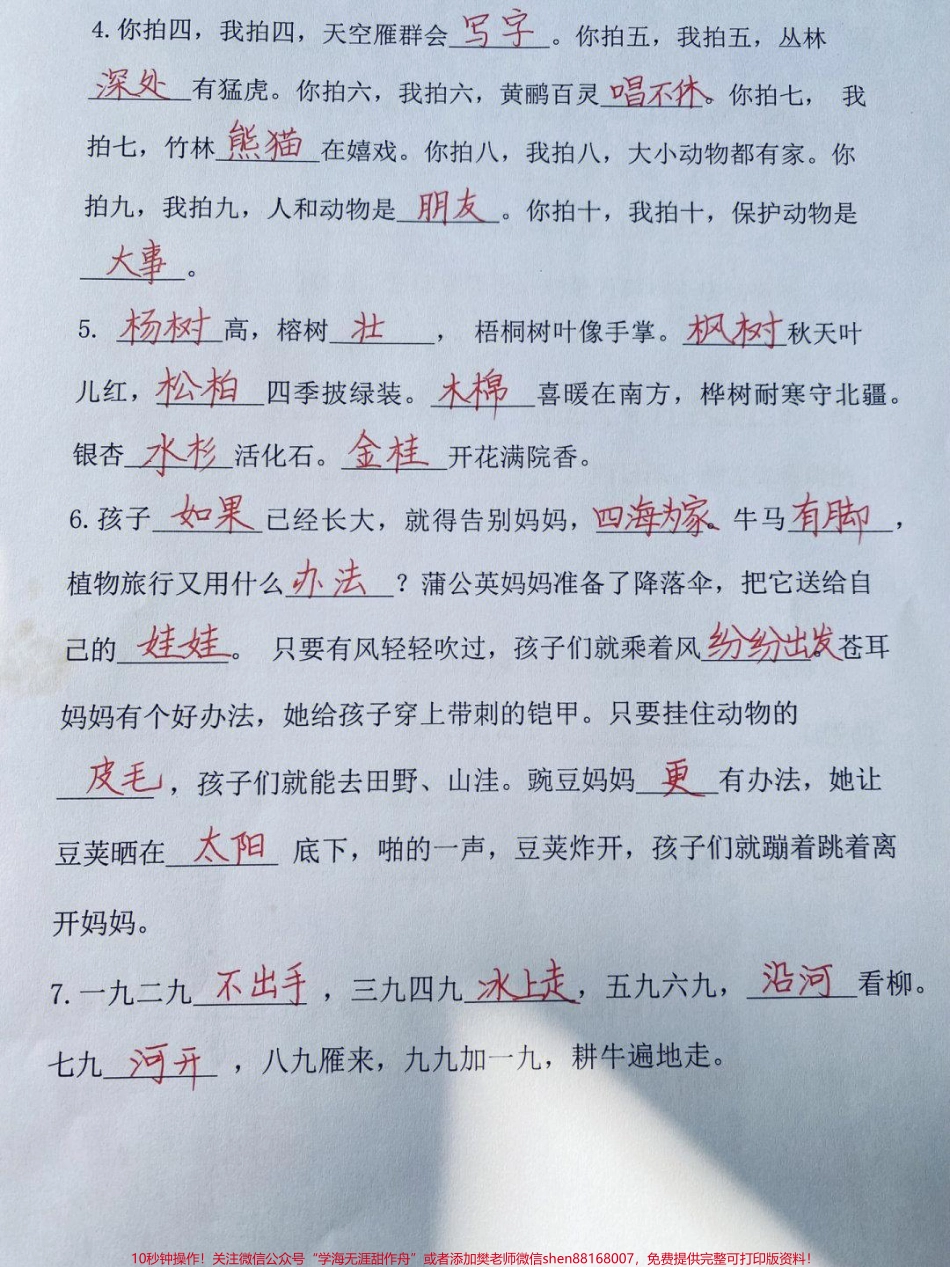 4.你拍四，我拍四，天空雁群会写字。你拍五，我拍五，丛林
深处有猛虎。你拍六，我拍六，黄鹂百灵唱不休。你拍七， 我
拍七，竹林熊猫在嬉戏。你拍八，我拍八，大小动物都有家。你
拍九，我拍九，人和动物是朋友。你拍十，我拍十，保护动物是
大事。
5. 杨树高，榕树壮， 梧桐树叶像手掌。枫树秋天叶
儿红，松柏四季披绿装。木棉喜暖在南方，桦树耐寒守北疆。
银杏水杉活化石。金桂开花满院香。
6.孩子如果已经长大，就得告别妈妈，四海为家。牛马有脚，
植物旅行又用什么办法？蒲公英妈妈准备了降落伞，把它送给自
己的娃娃。 只要有风轻轻吹过，孩子们就乘着风纷纷出发。苍耳
妈妈有个好办法，她给孩子穿上带刺的铠甲。只要挂住动物的
皮毛，孩子们就能去田野、山洼。豌豆妈妈更有办法，她让
豆荚晒在太阳 底下，啪的一声，豆荚炸开，孩子们就蹦着跳着离
开妈妈。
7.一九二九不出手，三九四九冰上走，五九六九，沿河看柳。
七九河开，八九雁来，九九加一九，耕牛遍地走。
10秒钟操作！关注微信公众号“学海无涯甜作舟”或者添加樊老师微信shen88168007，免费提供完整可打印版资料！